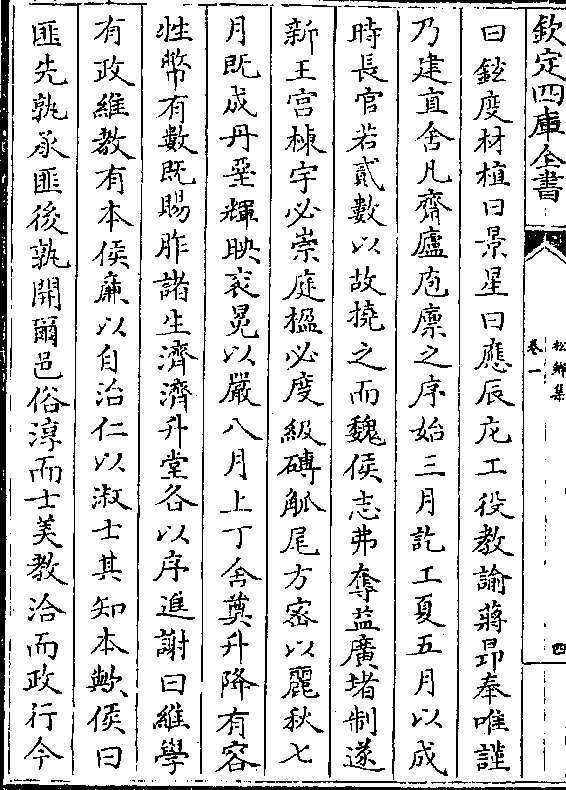 欽定四庫全書
松鄉集
卷一
四
曰鋐度材植曰景星曰應辰庀工役教諭蔣昻奉唯謹
乃建直舍凡齋廬庖廪之序始三月訖工夏五月以成
時長官若貳數以故撓之而魏侯志弗奪益廣堵制遂
新王宫棟宇必崇庭楹必度級磚觚尾方宻以麗秋七
月既成丹堊輝映衮冕以嚴八月上丁舍奠升降有容
牲幣有數既賜胙諸生濟濟升堂各以序進謝曰維學
有政維教有本侯亷以自治仁以淑士其知本歟侯曰
匪先孰承匪後孰開爾邑俗淳而士美教洽而政行今